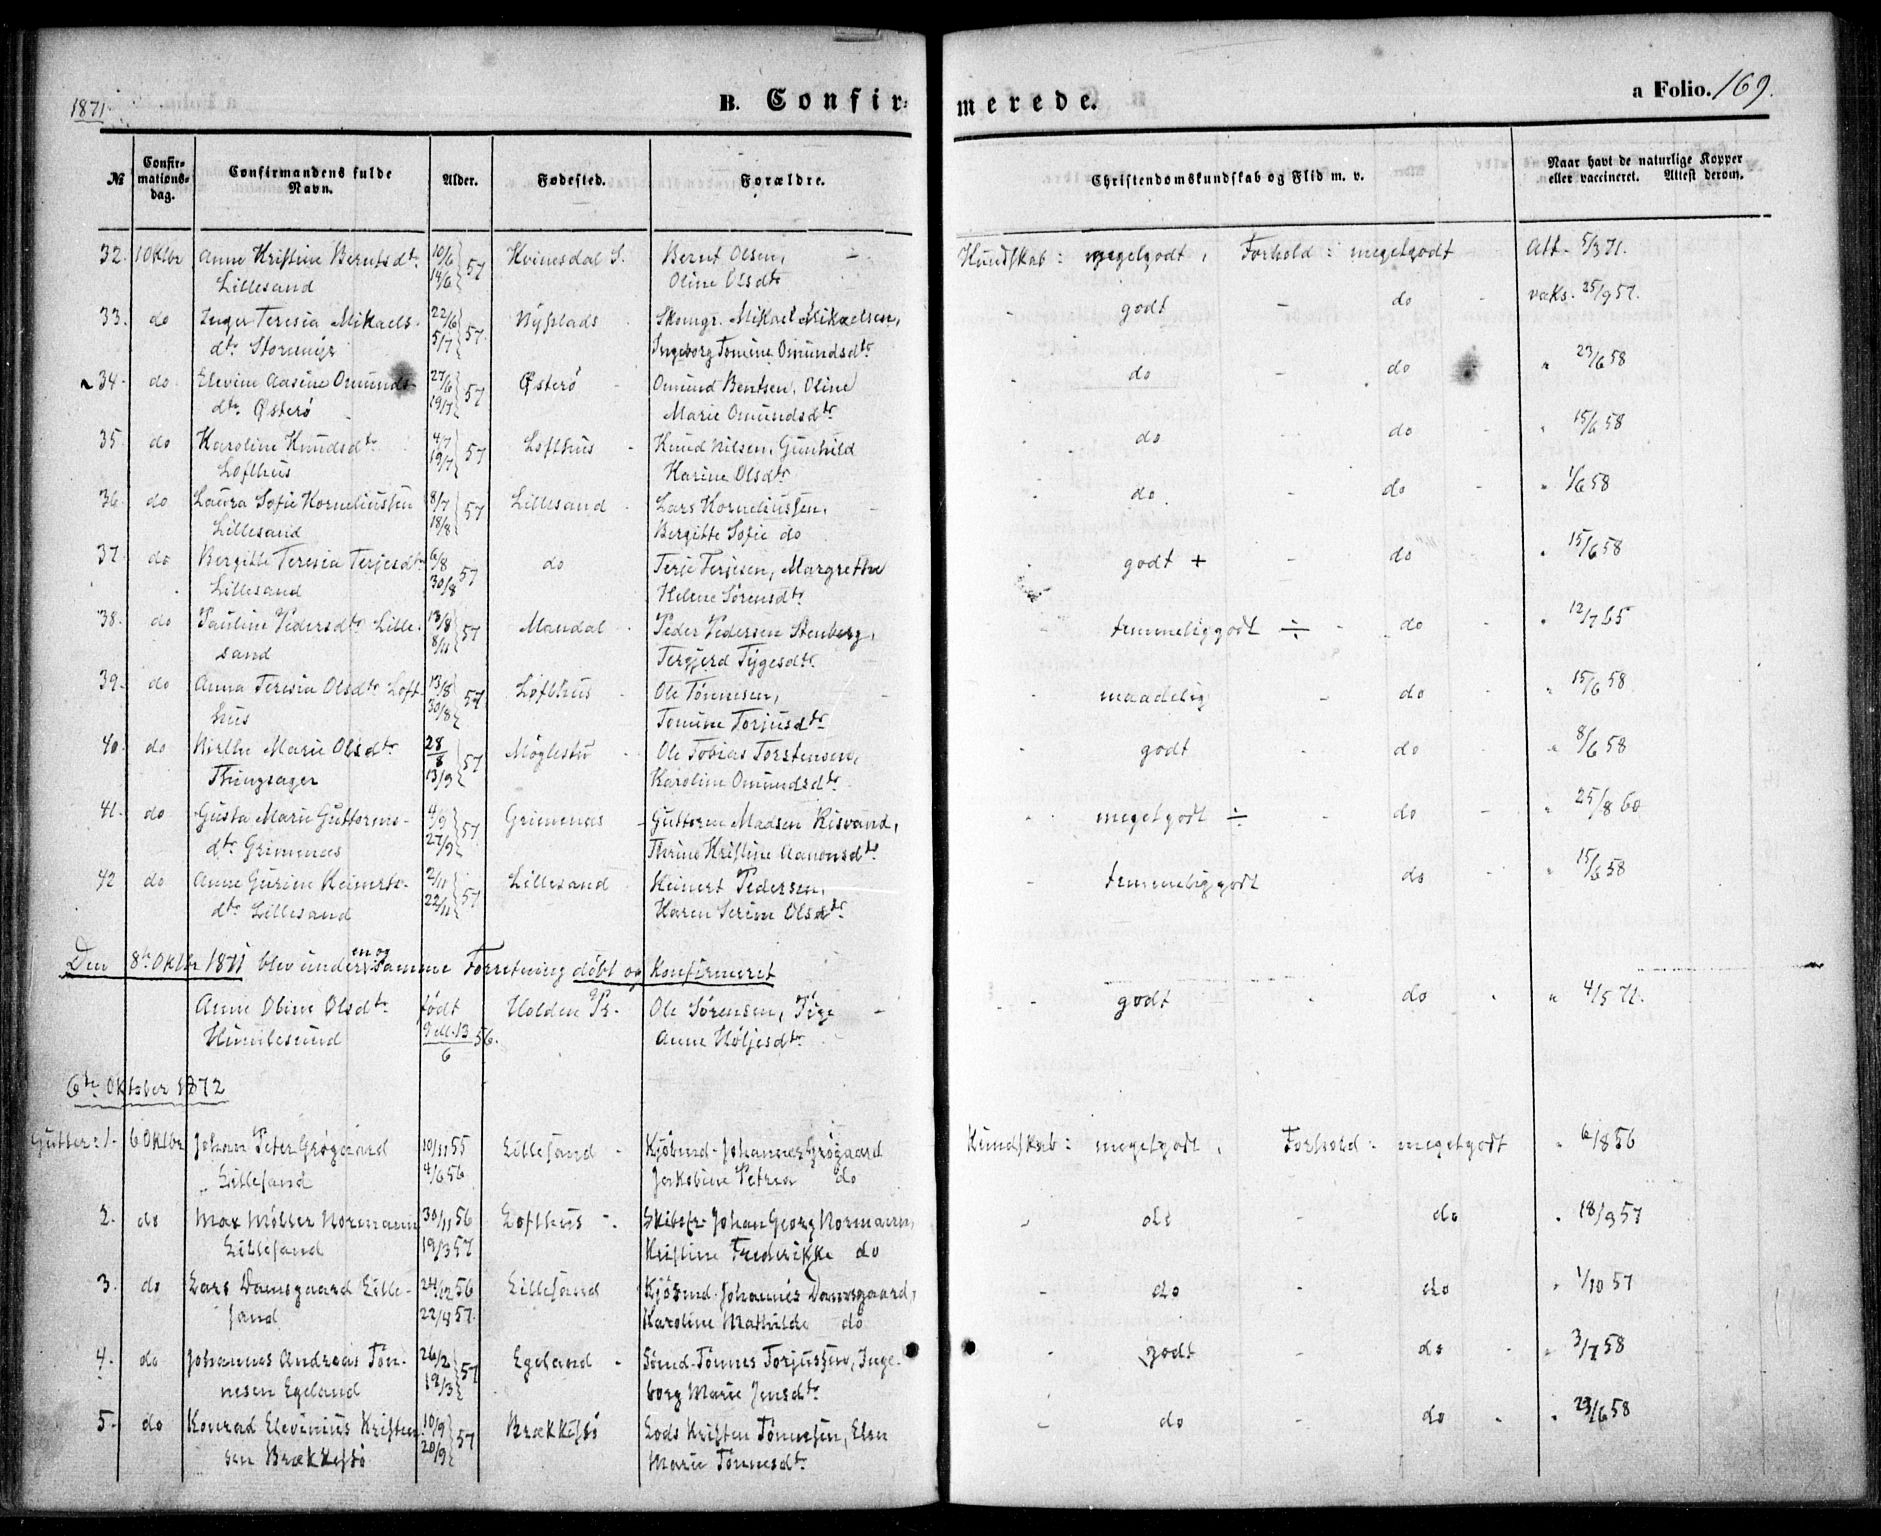 1871
B. Confir-
merede.
a Folio. 169.
№
Confir-
mations-
dag.
Confirmandens fulde
Navn.
Alder.
Fødested.
Forældre.
Christendomskundskab og Flid m. v.
Naar havt de naturlige Kopper
eller vaccineret. Attest derom.
32. 1 Oktbr Anne Kristine Berntsdtr 10/6 57 Kvinesdal S. Bernt Olsen, Kundskab: megetgodt, Forhold: megetgodt Att. 5/3 71.
Lillesand 14/6 Oline Olsdtr
33. do Inger Teresia Mikaels- 22/6 57. Nyplads Skomgr. Mikael Mikaelsen, godt - do - vaks. 25/9 57.
dtr. 5/7 Ingeborg Tomine Omundsdtr
34. do. Elevine Aasine Omunds- 27/6 57 Østerö - Omund Bentsen, Oline do - do " 23/6 58
dtr. Østerö 19/7 Marie Omundsdtr
35. do Karoline Knudsdtr 4/7 57 Lofthus - Knud Nilsen, Gunhild do do - " 15/6 58
Lofthus 19/7 Karine Olsdtr
36. do Laura Sofie Korneliussen 8/7 57 Lillesand Lars Korneliussen, do. - do - " 1/6 58
Lillesand 18/8 Bergitte Sofie do
37. do Bergitte Teresia Terjesdtr 6/8 57 do Terje Terjesen, Margrethe godt + - do " 15/6 58
Lillesand 30/8 Helene Sörensdtr
38. do Pauline Pedersdtr Lille- 13/8 57 Mandal Peder Pedersen Stenberg, temmeliggodt ÷ - do - " 12/7 65
sand 8/11 Tygesdtr
39. do Anna Teresia Olsdtr Loft- 13/8 57 Lofthus - Ole Tönnesen, maadelig - do - " 15/6 58
hus 30/8 Tomine Torjusdtr
40. do Marie Olsdtr 28/8 57 Möglestu Ole Tobias Torstensen, godt - do - " 8/6 58
Thingsager 13/9 Karoline Omundsdtr
41. do Gusta Marie Guttorms- 4/9 57 Grimenæs - Guttorm Madsen Risvand, megetgodt ÷ - do - " 25/8 60
dtr. Grimenæs 27/9 Kristine Aanonsdtr
42 do Anne Gurine Reinerts- 2/11 57 Lillesand Reinert Pedersen, temmeliggodt do - " 15/6 58
dtr Lillesand 22/11 Karen Serine Olsdtr
Den 8de Oktbr 1871 blev under en og samme Forretning döbt og Konfirmeret
Anne Oline Olsdtr födt Holden Pr. Ole Sörensen, godt do " 4/5 71.
Humlesund 13/6 56. Anne Höljesdtr
6te Oktober 1872
Gutter: 1. 6 Oktbr Johan Peter Grögaard 10/11 55 Lillesand - Kjöbmd. Johannes Grögaard Kundskab: megetgodt, Forhold: megetgodt " 6/8 56
Lillesand 4/6 56 Jakobine Petrea do
2. do Max Möller Normann 30/11 56 Lofthus -. Skibsfr. Johan Georg Normann, do - do " 18/9 57
Lillesand 19/3 57 Kristine Frederikke do
3. do Lars Damsgaard Lille- 24/12 56 Lillesand Kjöbmd. Johannes Damsgaard, do - do " 1/10 57
sand 22/8 57. Karoline Mathilde do
4. do Johannes Andreas Tön- 26/2 57 Egeland - Sömd. Tönnes Torjussen, Inge- godt - do - " 3/7 58
nesen Egeland 19/3 borg Marie Jensdtr
5. do Konrad Elevinius Kristen- 10/9 57 Brækkestö Lods Kristen Tönnesen, Elen do - do - " 23/6 58
sen Brækkestö 20/9 Marie Tönnesdtr